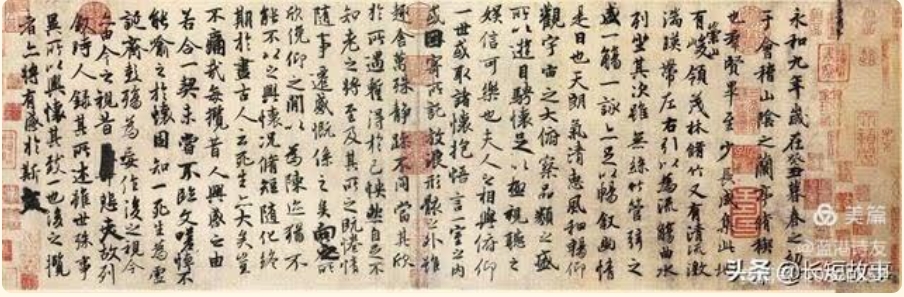 永和九年歲在癸丑暮春之初
于會稽山陰之蘭亭脩稧
也羣賢畢至少長咸集此地
有崇山峻領茂林脩竹又有清流激
湍暎帶左右引以為流觴曲水
列坐其次雖無絲竹管弦之
盛一觴一詠亦足以暢敘幽情
是日也天朗氣清惠風和暢仰
觀宇宙之大俯察品類之盛
所以遊目騁懷足以極視聽之
娛信可樂也夫人之相與俯仰
一世或取諸懷抱悟言一室之內
或因寄所託放浪形骸之外雖
趣舍萬殊靜躁不同當其欣
於所遇蹔得於己怏然自足不
知老之將至及其所之既惓情
隨事遷感慨係之矣向之所
欣俛仰之閒以為陳迹猶不
能不以之興懷況脩短隨化終
期於盡古人云死生亦大矣豈
不痛哉每攬昔人興感之由
若合一契未嘗不臨文嗟悼不
能喻之於懷固知一死生為虛
誕齊彭殤為妄作後之視今
亦由今之視昔悲夫故列
敘時人錄其所述雖世殊事
異所以興懷其致一也後之攬
者亦將有感於斯文
美篇
@蓝港诗友
头条 @长短故事